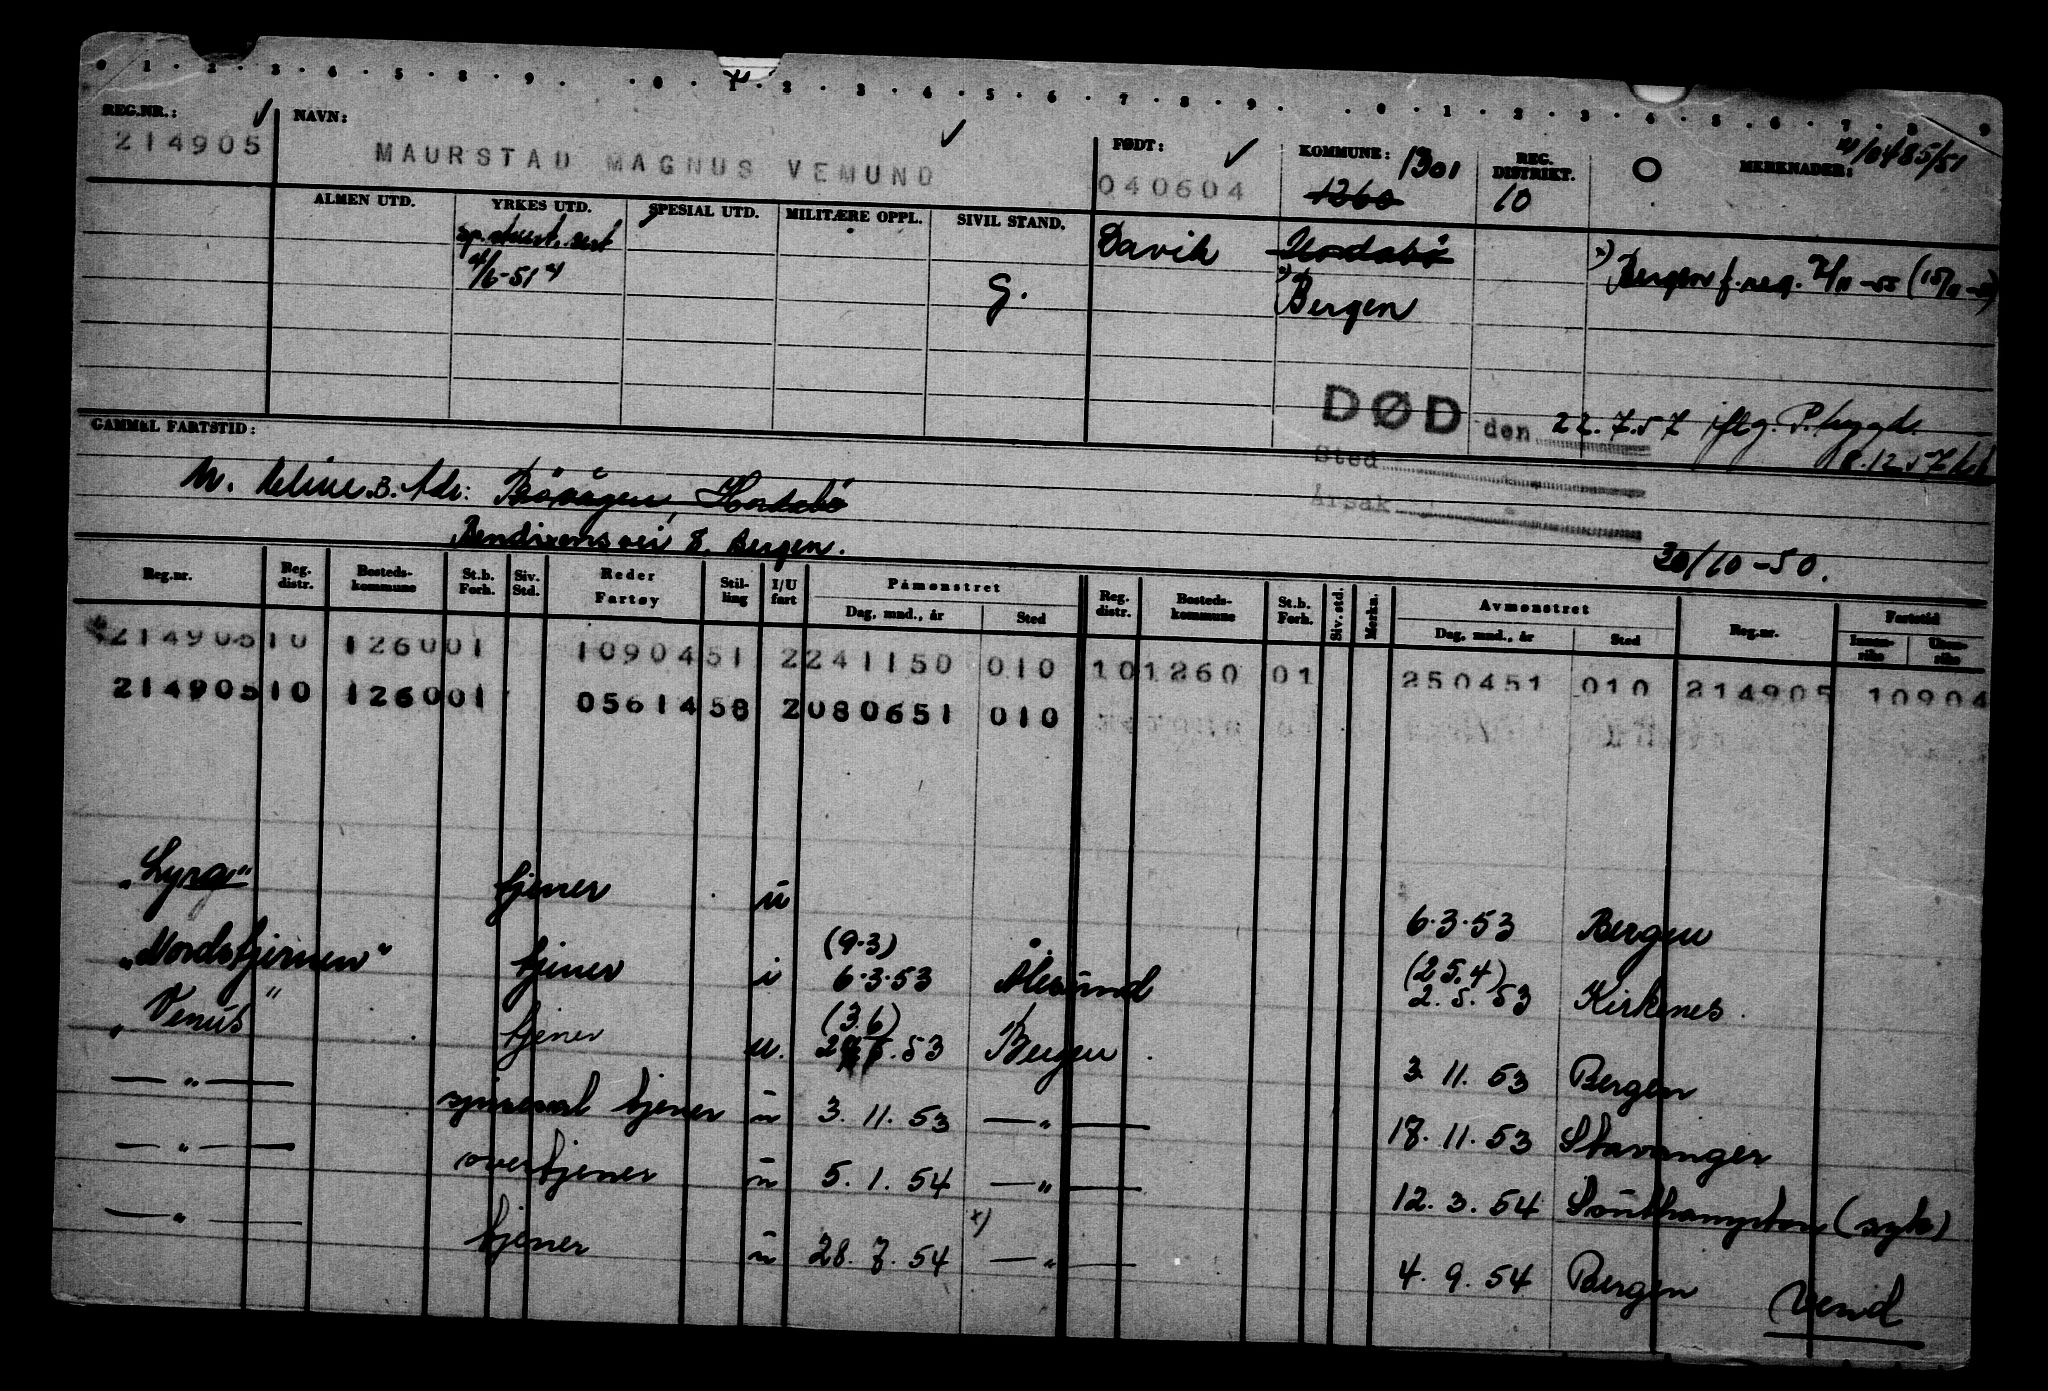 0 . 1 . 2 . 3 . 4 . 5 . 8 . 9 . . 0 . 1 . 2 . 3 . 4 . 5 . 6 . 7 . 8 . 9 . . 0 . 1 . 2 . 3 . 4 . 5 . 6 . 7 . 8 . 9
REG.NR.: NAVN: FØDT: KOMMUNE: 1301 REG. DISTRIKT. MERKNADER:
214905 MAURSTAD MAGNUS VEMUND 040604 1260 10
ALMEN UTD. YRKES UTD. SPESIAL UTD. MILITÆRE OPPL. SIVIL STAND.
Davik Hordabø x) Bergen f.reg.
G. x) Bergen
DØD den 22.7.57 iflg. P.trygd.
GAMMEL FARTSTID: Sted 8.12.57
M. Adr: Bøvågen, Hordabø Årsak
Bendixensvei 8. Bergen. 30/10-50.
Reg.nr. Reg. distr. Bosteds-kommune St.b. Forh. Siv. Std. Reder Fartøy Stil-ling I/U fart Påmønstret Reg. distr. Bosteds-kommune St.b. Forh. Siv. std. Merkn. Avmønstret Reg.nr. Fartstid
Dag, mnd., år Sted Dag, mnd., år Sted Innen-riks Uten-riks
214905 10 1260 01 10904 51 2 241150 010 10 1260 01 250451 010 214905 10904
214905 10 1260 01 05614 58 2 080651 010
"Lyra" tjener u 6.3.53 Bergen
(9.3) (25.4)
"Nordstjernen" tjener i 6.3.53 Ålesund 2.5.53 Kirkenes
(3.6)
"Venus" tjener u. .53 Bergen 3.11.53 Bergen
— " — tjener u 3.11.53 — " — 18.11.53 Stavanger
— " — overtjener u 5.1.54 — " — 12.3.54 Southampton (syk)
x)
— " — tjener u 28.7.54 — " — 4.9.54 Bergen
Vend